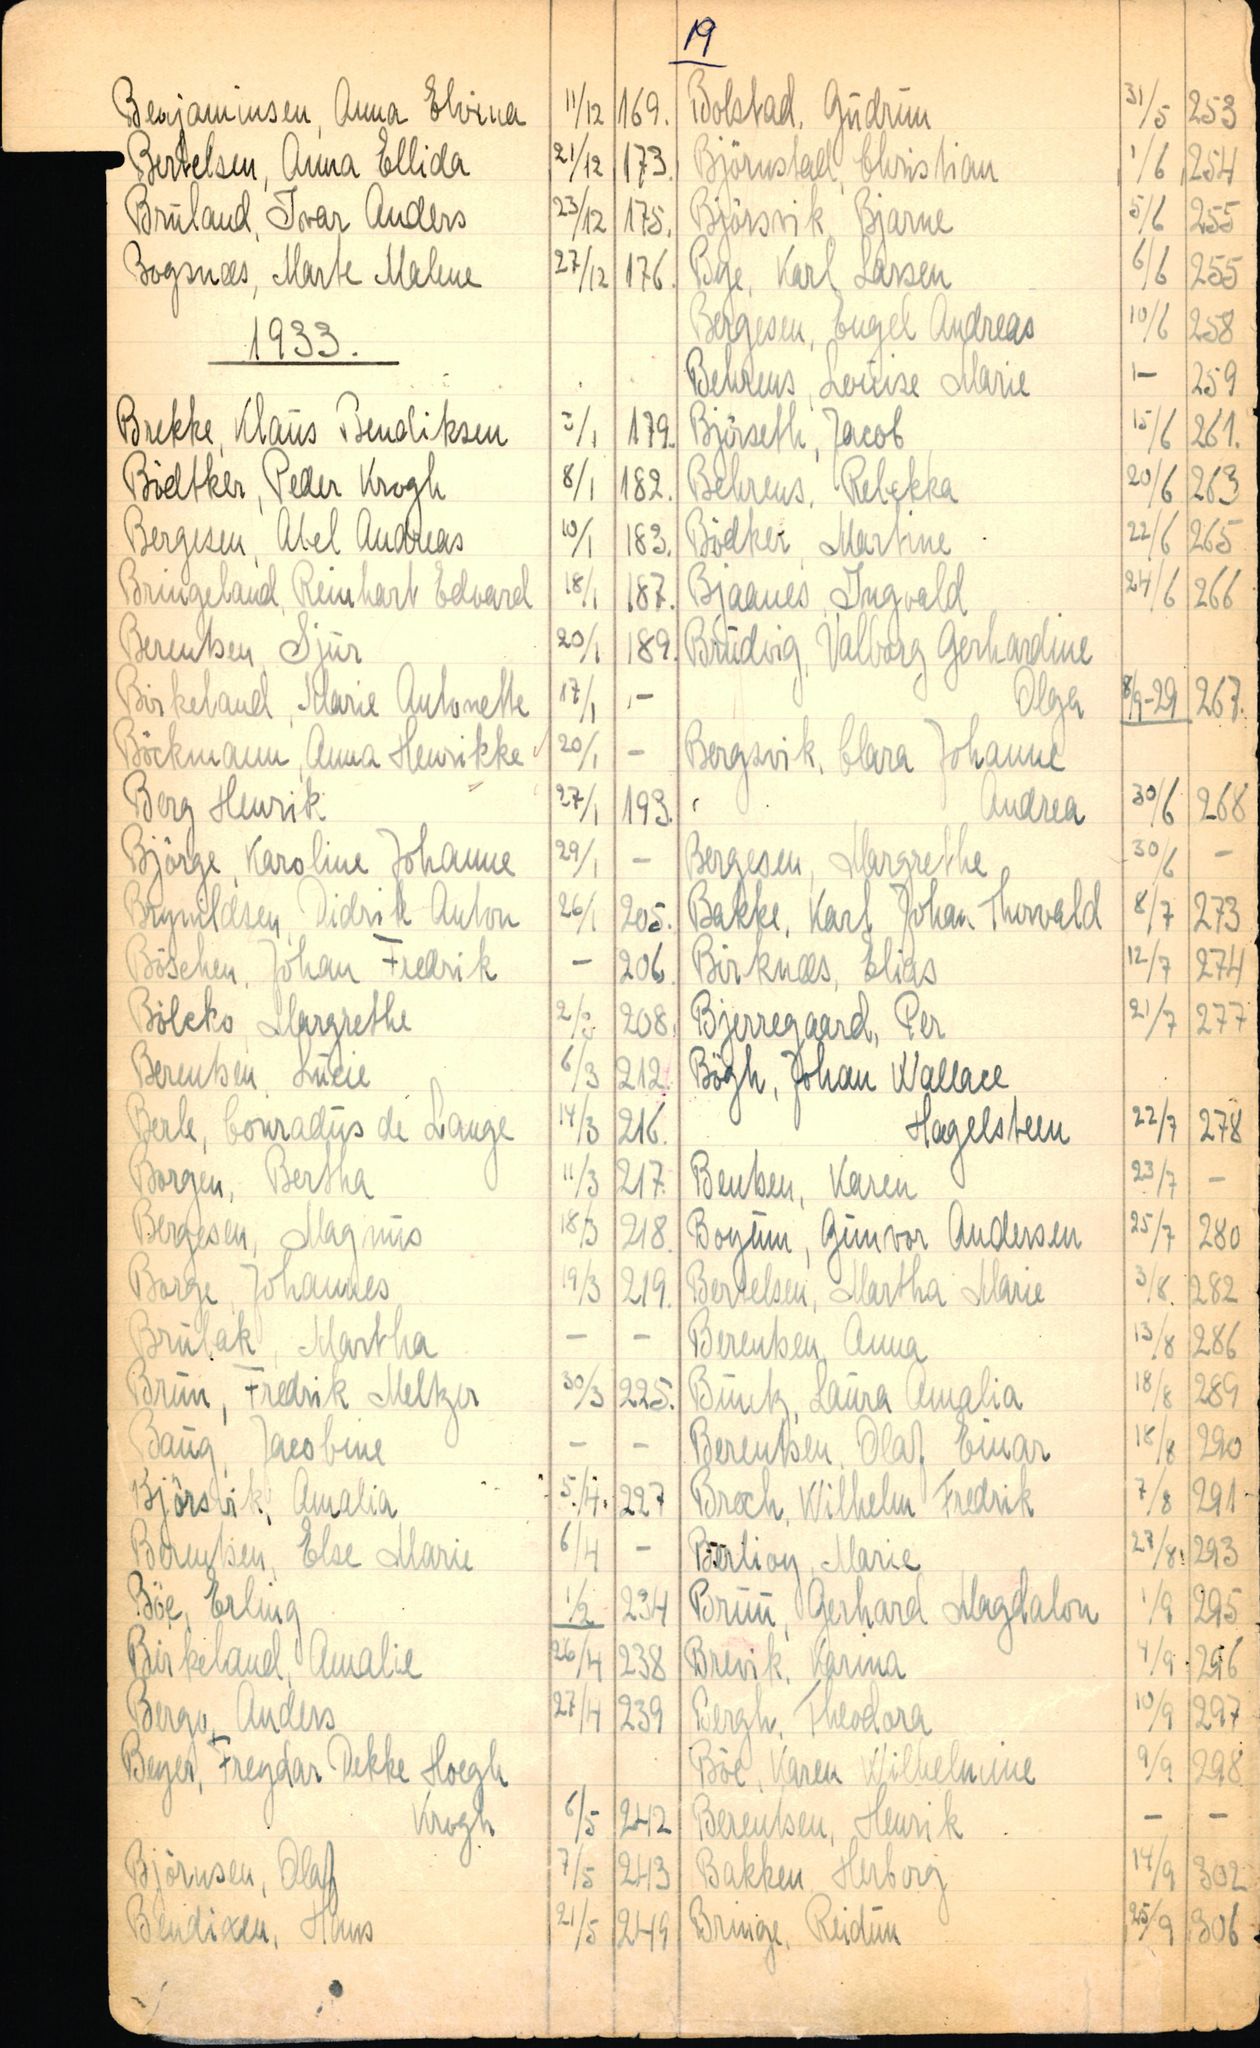 19
Benjaminsen, Anna Elvina 11/12 169.
Bertelsen, Anna Ellida 21/12 173.
Bruland, Ivar Anders 23/12 175.
Bogsnæs, Marte Malene 27/12 176.
1933.
Brekke, Klaus Bendiksen 3/1 179.
Bödtker, Peder Krogh 8/1 182.
Bergesen, Abel Andreas 10/1 183.
Bringeland, Reinhart Edvard 18/1 187.
Berentsen, Sjur 20/1 189.
Birkeland, Marie Antonette 17/1 -
Böckmann, Anna Henrikke 20/1 -
Berg Henrik 27/1 193.
Björge, Karoline Johanne 29/1 -
Brynildsen, Didrik Anton 26/1 205.
Böschen, Johan Fredrik - 206.
Bölcko, Margrethe 208.
Berentsen, Lucie 6/3 212.
Berle, Conradus de Lange 14/3 216.
Borgen, Bertha 11/3 217.
Bergesen, Magnus 18/3 218.
Borge, Johannes 19/3 219.
Brulak, Martha - -
Brun, Fredrik Meltzer 30/3 225.
Baug, Jacobine - -
Björsvik, Amalia 5/4. 227
Berentsen, Else Marie 6/4 -
Böe, Erling 1/2 234
Birkeland, Amalie 26/4 238
Bergo, Anders 27/4 239
Beyer, Freydar Dekke Hoegh
Krogh 6/5 242
Björnsen, Olaf 7/5 243
Bendixen, Hans 21/5 249
Bolstad, Gudrun 31/5 253
Björnstad, Christian 1/6 254
Björsvik, Bjarne 5/6 255
Bge, Karl Larsen 6/6 255
Bergesen, Engel Andreas 10/6 258
Behrens, Louise Marie 1- 259
Björseth, Jacob 15/6 261.
Behrens, Rebekka 20/6 263
Bödker, Martine 22/6 265
Bjaanes, Ingvald 24/6 266
Brudvig, Valborg Gerhardine
Olga 8/9-29 267.
Bergsvik, Clara Johanne
Andrea 30/6 268
Bergesen, Margrethe 30/6 -
Bakke, Karl Johan Thorvald 8/7 273
Birknæs, Elias 12/7 274
Bjerregaard, Per 21/7 277
Bögh, Johan Wallace
Hagelsteen 22/7 278
Bentsen, Karen 23/7 -
Boyum, Gunvor Andersen 25/7 280
Bertelsen, Martha Marie 3/8. 282
Berentsen, Anna 13/8 286
Buntz, Laura Amalia 18/8 289
Berentsen, Olaf Einar 18/8 290
Broch, Wilhelm Fredrik 7/8 291
Marie 27/8. 293
Bruu, Gerhard Magdalon 1/9 295
Brevik, Karina 4/9 296
Bergh, Theodora 10/9 297
Böe, Karen Wilhelmine 9/9 298
Berentsen, Henrik - -
Bakken, Herborg 14/9 302
Bringe, Reidun 25/9 306